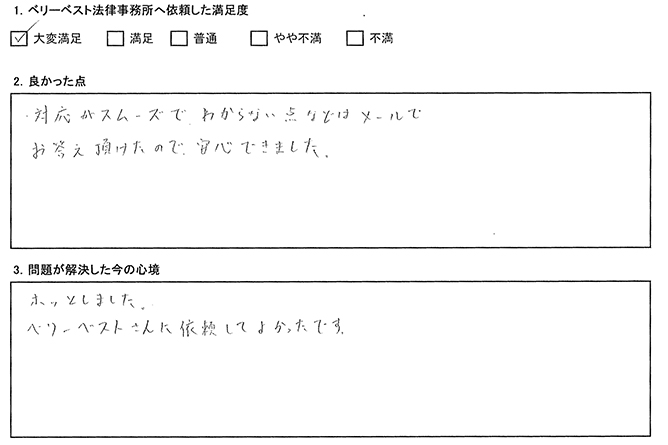 1. ベリーベスト法律事務所へ依頼した満足度
☑ 大変満足 □ 満足 □ 普通 □ やや不満 □ 不満
2. 良かった点
対応がスムーズで、わからない点などはメールで
お答え頂けたので、安心できました。
3. 問題が解決した今の心境
ホッとしました。
ベリーベストさんに依頼してよかったです。